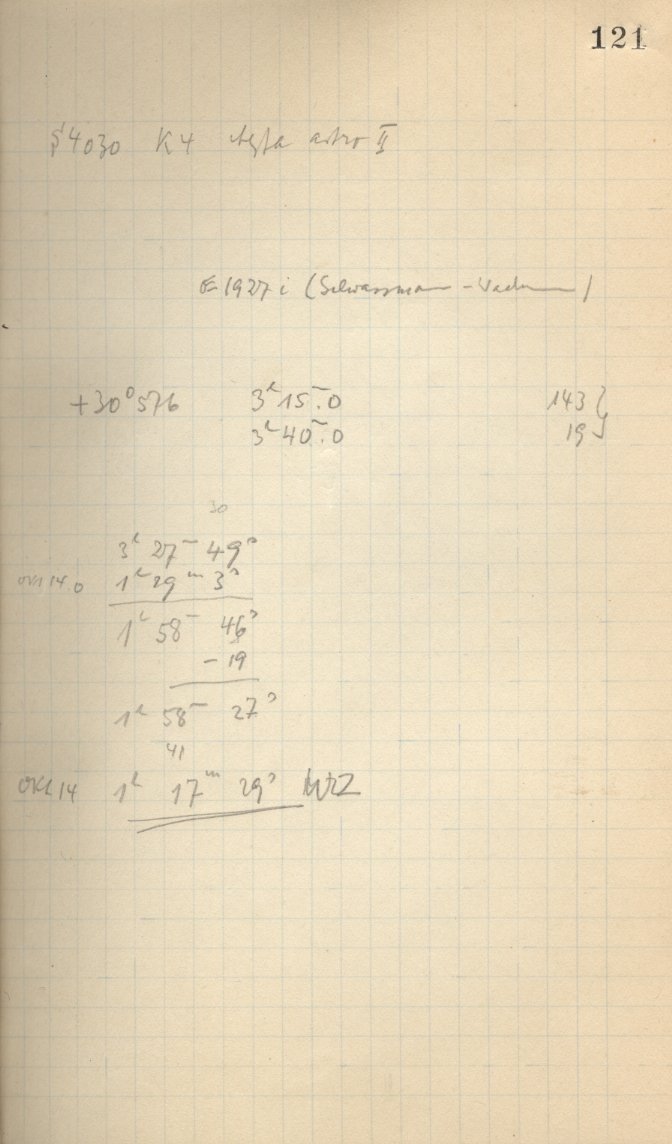 121
§4030 K4 Agfa astro II
1927 i (Schwassmann - Wachmann)
+30° 576 3ʰ15ᵐ.0 143 }
3ʰ40ᵐ.0 19
30
3ʰ 27ᵐ 49ˢ
Okt 14.0 1ʰ 29ᵐ 3ˢ
1ʰ 58ᵐ 46ˢ
- 19
1ʰ 58ᵐ 27ˢ
41
Okt 14 1ʰ 17ᵐ 29ˢ WZ